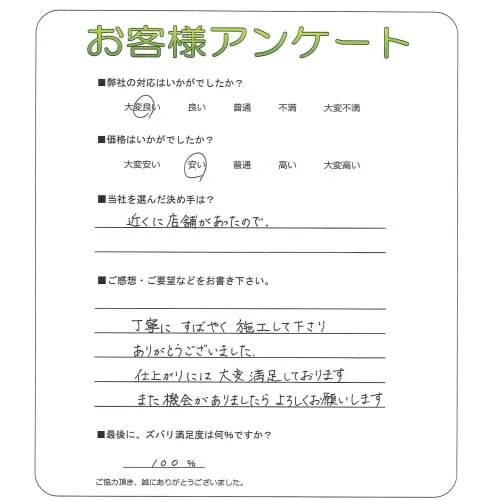 お客様アンケート
■弊社の対応はいかがでしたか？
大変良い 良い 普通 不満 大変不満
■価格はいかがでしたか？
大変安い 安い 普通 高い 大変高い
■当社を選んだ決め手は？
近くに店舗があったので.
■ご感想・ご要望などをお書き下さい。
丁寧に すばやく 施工して下さり
ありがとうございました.
仕上がりには 大変 満足しております
また機会がありましたら よろしくお願いします
■最後に、ズバリ満足度は何%ですか？
100 %
ご協力頂き、誠にありがとうございました。